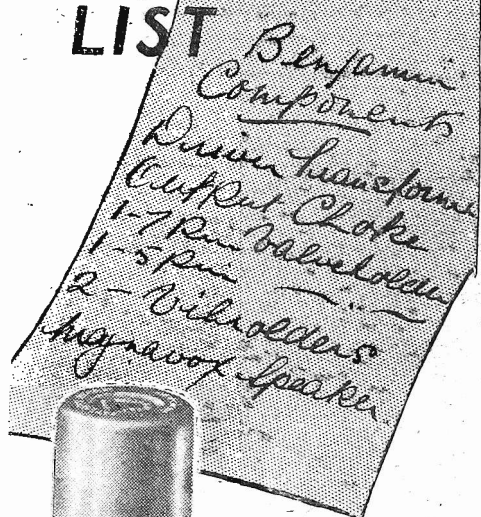 LIST
Benjamin
Components
Driver Transformer
Output Choke
1-7 pin Valveholder
1-5 pin — " —
2 - Vibrolders
Magnavox Speaker.